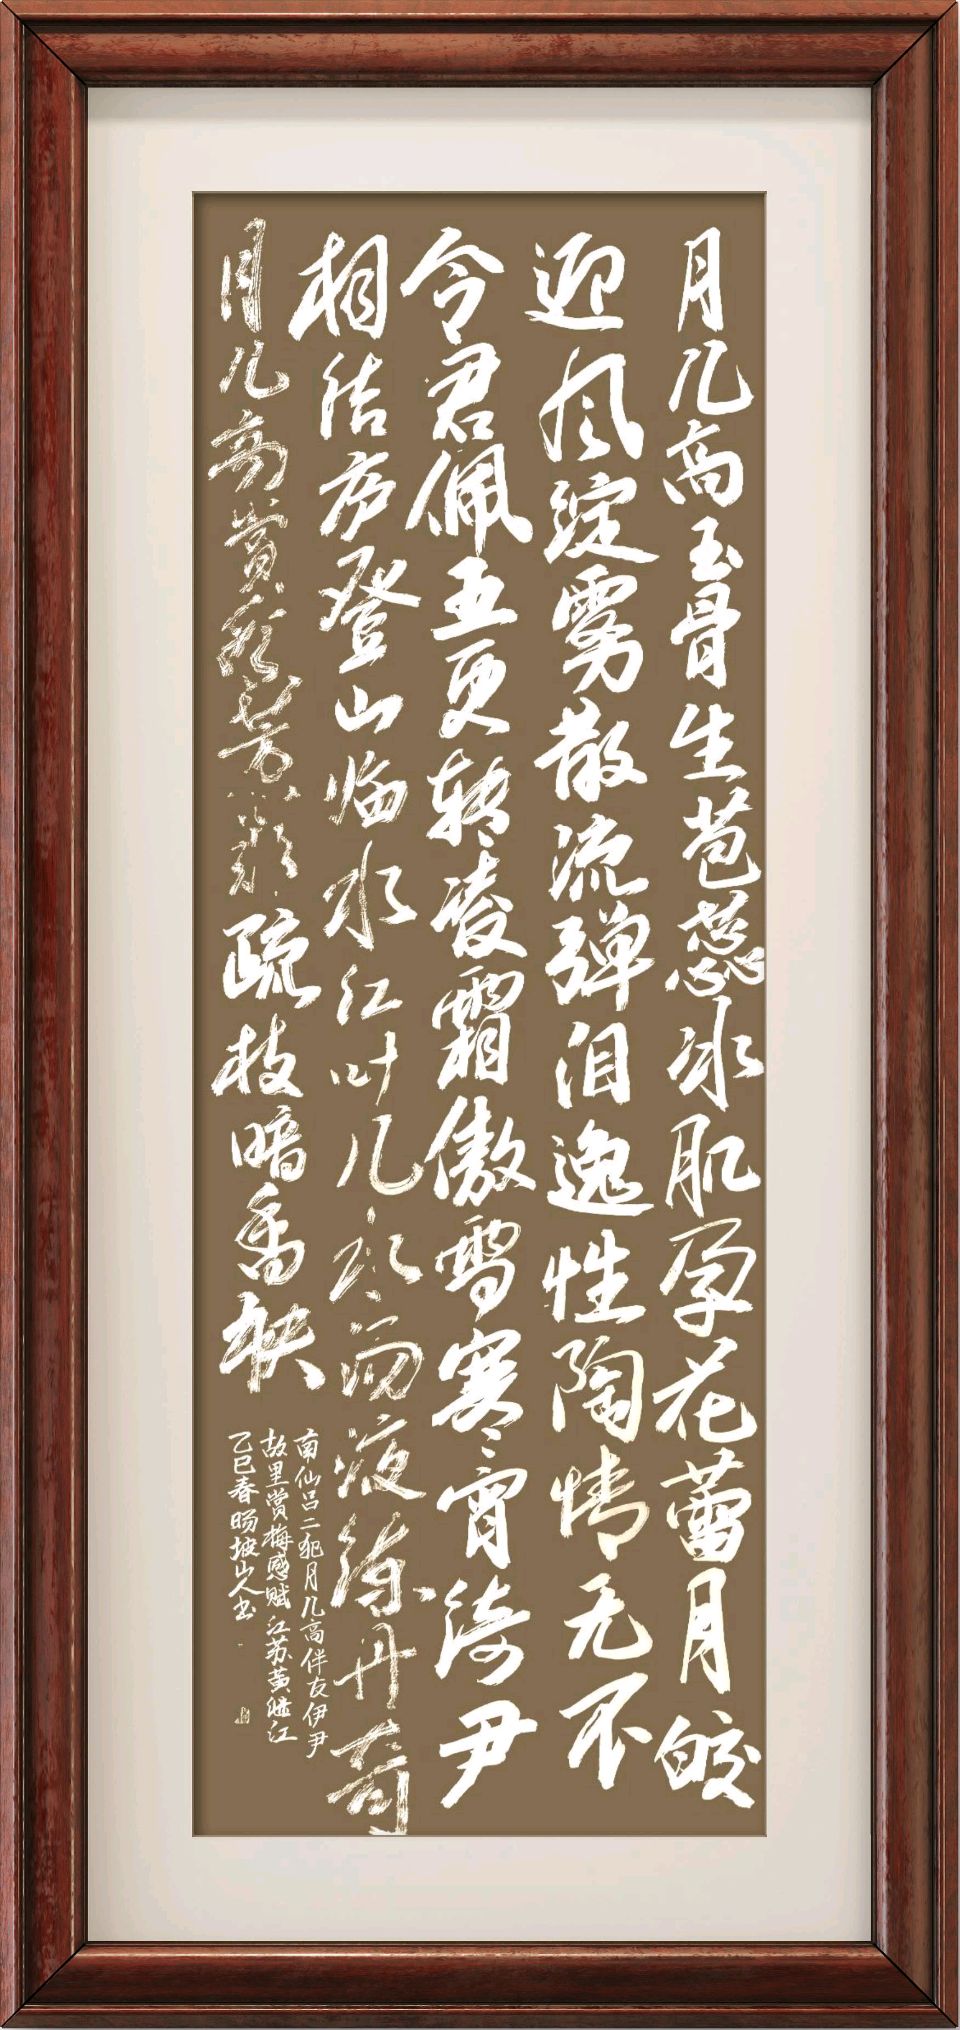 月几高玉骨生苞蕊冰肌孕花蕾月皎
迎风绽雾散流弹泪逸性陶情无不
令君佩五更转凌霜傲雪寒宵绮尹
相结序登山临水红叶儿永而液练丹奇
月几高赏彩芳影疏枝暗香轶
南仙吕二犯月几高伴友伊尹
故里赏梅感赋江苏黄 江
乙巳春旸坡山人书